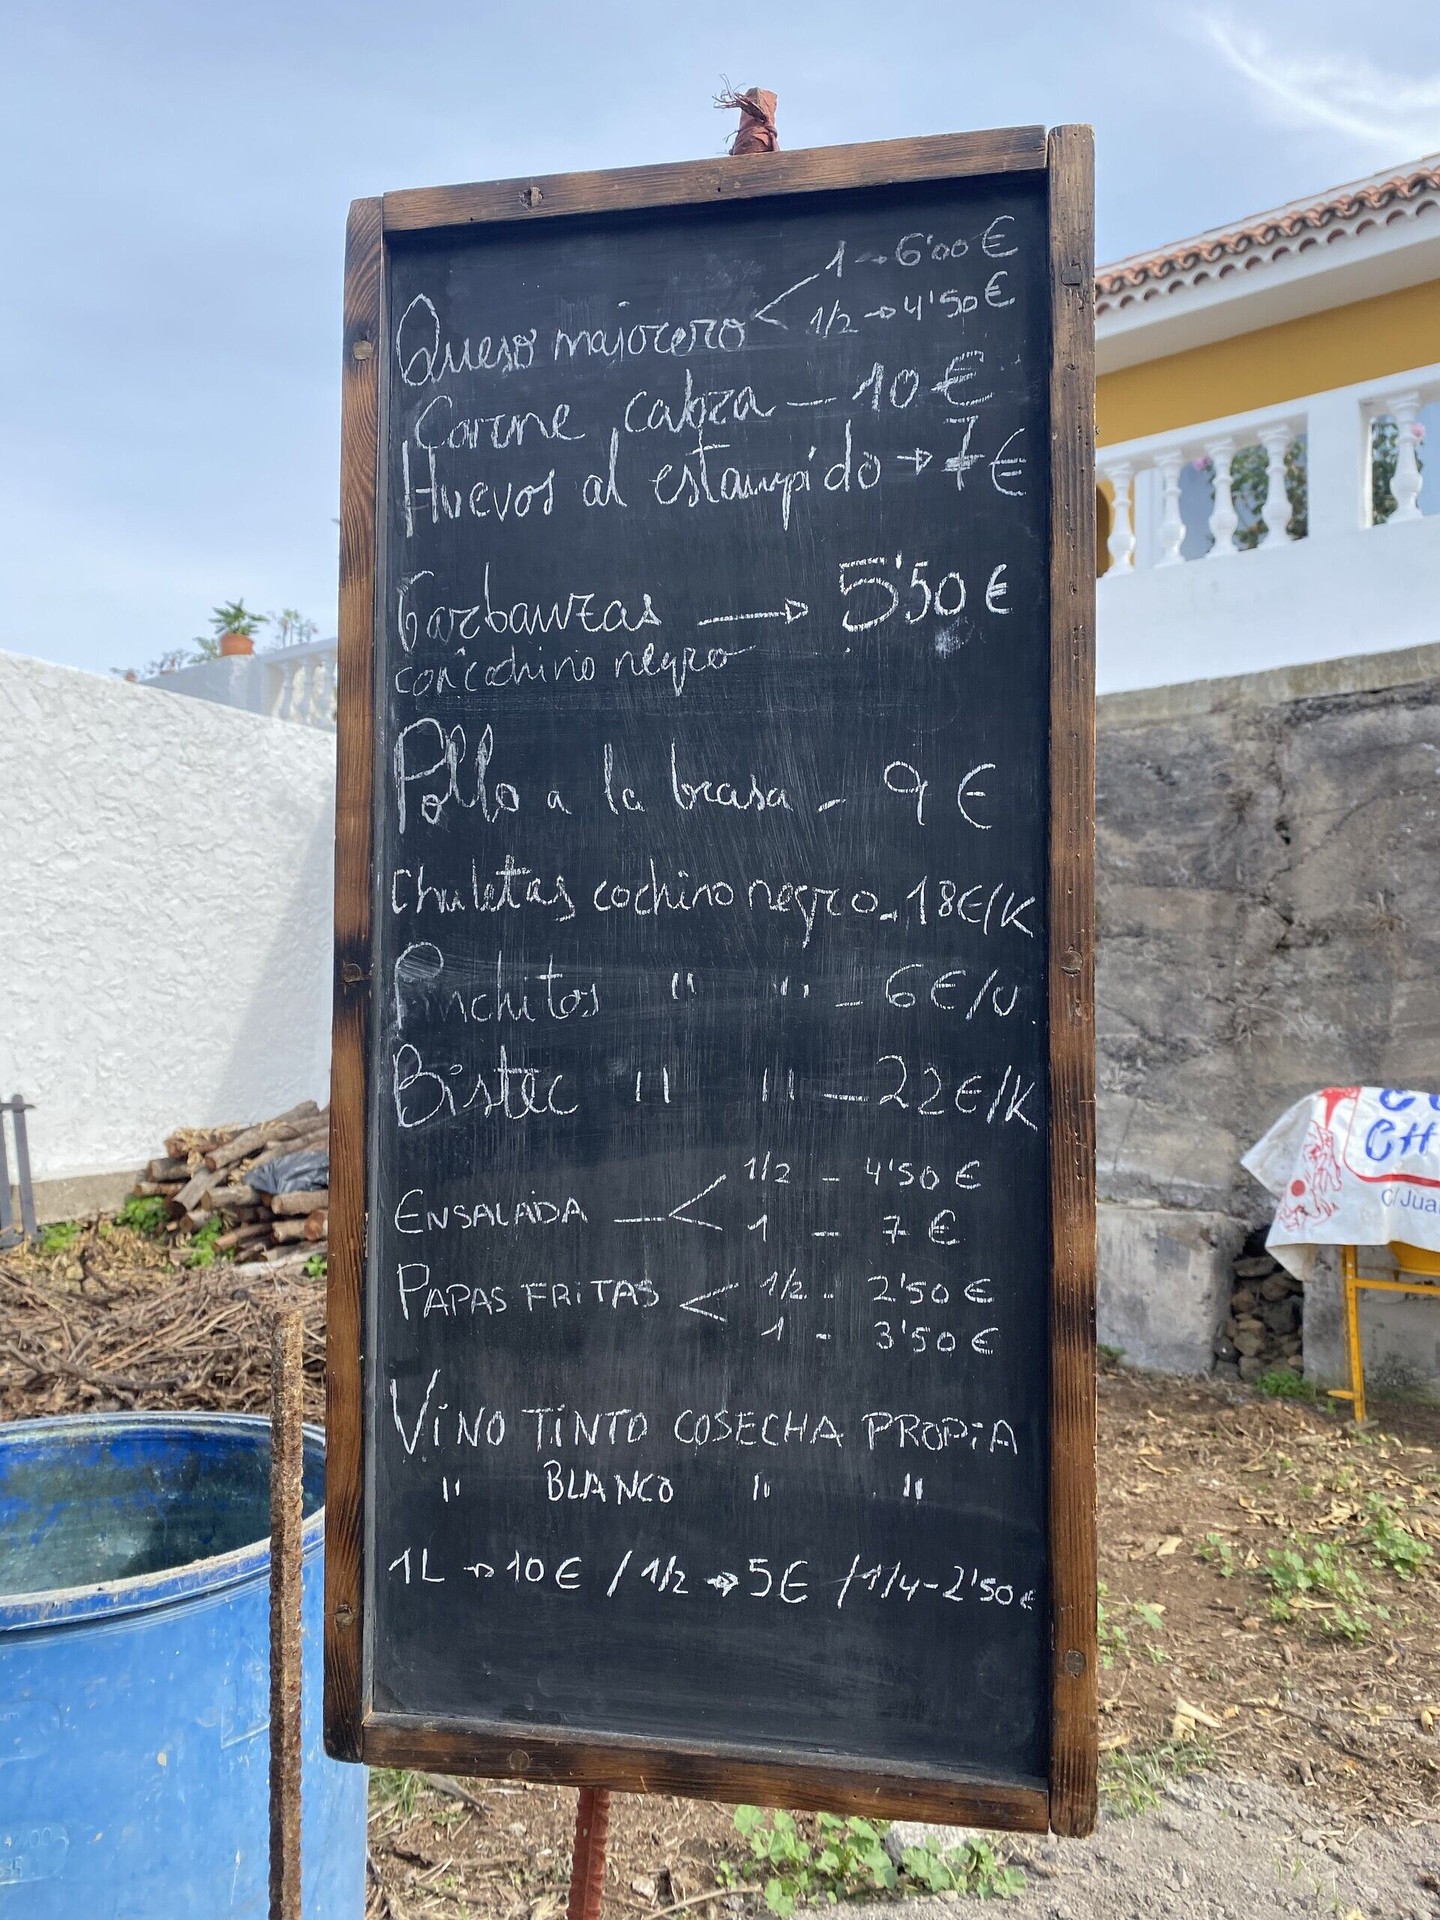 Queso majorero < 1 → 6'00 €
1/2 → 4'50 €
Carne cabra - 10 €
Huevos al estampido → 7 €
Garbanzas → 5'50 €
con cochino negro
Pollo a la brasa - 9 €
Chuletas cochino negro - 18€/K
Pinchitos " " - 6€/U.
Bistec " " - 22€/K
ENSALADA < 1/2 - 4'50 €
1 - 7 €
PAPAS FRITAS < 1/2 - 2'50 €
1 - 3'50 €
VINO TINTO COSECHA PROPIA
" BLANCO " "
1L → 10€ / 1/2 → 5€ / 1/4 - 2'50€
CH
C/Jua